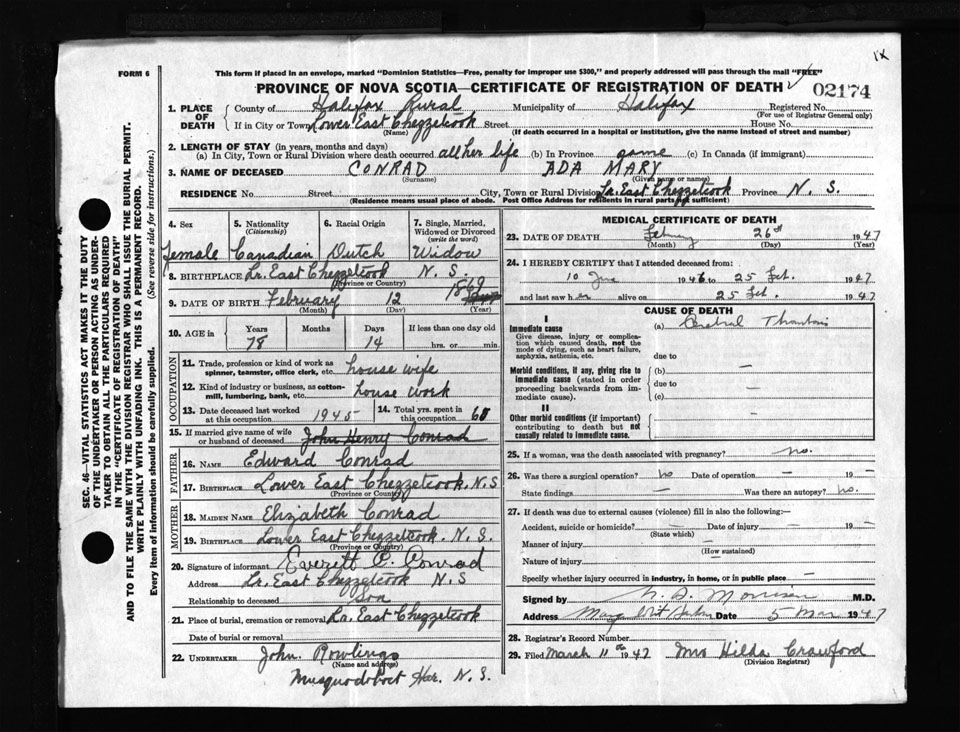 1X
FORM 6
This form if placed in an envelope, marked "Dominion Statistics—Free, penalty for improper use $300," and properly addressed will pass through the mail "FREE"
PROVINCE OF NOVA SCOTIA—CERTIFICATE OF REGISTRATION OF DEATH
02174
1. PLACE OF DEATH
County of Halifax Rural Municipality of Halifax Registered No.
(For use of Registrar General only)
If in City or Town Lower East Chezzetcook Street House No.
(Name) (If death occurred in a hospital or institution, give the name instead of street and number)
2. LENGTH OF STAY (in years, months and days)
(a) In City, Town or Rural Division where death occurred all her life (b) In Province same (c) In Canada (if immigrant)
3. NAME OF DECEASED CONRAD ADA MARY
(Surname) (Given name or names)
RESIDENCE No. Street City, Town or Rural Division Lr. East Chezzetcook Province N. S.
(Residence means usual place of abode. Post Office Address for residents in rural parts not sufficient)
4. Sex
Female
5. Nationality
(Citizenship)
Canadian
6. Racial Origin
Dutch
7. Single, Married, Widowed or Divorced
(write the word)
Widow
8. BIRTHPLACE Lr. East Chezzetcook N. S.
(Province or Country)
9. DATE OF BIRTH February 12 1869
(Month) (Day) (Year)
10. AGE in
Years Months Days If less than one day old
78 14 hrs. or min.
OCCUPATION
11. Trade, profession or kind of work as spinner, teamster, office clerk, etc. house wife
12. Kind of industry or business, as cotton-mill, lumbering, bank, etc. house work
13. Date deceased last worked at this occupation 1945
14. Total yrs. spent in this occupation 60
15. If married give name of wife or husband of deceased John Henry Conrad
FATHER
16. NAME Edward Conrad
17. BIRTHPLACE Lower East Chezzetcook. N. S
(Province or Country)
MOTHER
18. MAIDEN NAME Elizabeth Conrad
19. BIRTHPLACE Lower East Chezzetcook. N. S.
(Province or Country)
20. Signature of informant Everett C. Conrad
Address Lr. East Chezzetcook N. S
Relationship to deceased Son
21. Place of burial, cremation or removal Lr. East Chezzetcook
Date of burial or removal
22. UNDERTAKER John. Rowlings
(Name and address)
Musquodoboit Har. N. S.
MEDICAL CERTIFICATE OF DEATH
23. DATE OF DEATH February 26th 1947
(Month) (Day) (Year)
24. I HEREBY CERTIFY that I attended deceased from:
10 1946 to 25 Feb. 1947
and last saw her alive on 25 Feb. 1947
CAUSE OF DEATH
I
Immediate cause
Give disease, injury or complication which caused death, not the mode of dying, such as heart failure, asphyxia, asthenia, etc.
(a) Cerebral Thrombosis
due to
Morbid conditions, if any, giving rise to immediate cause (stated in order proceeding backwards from immediate cause).
(b) —
due to —
(c)
II
Other morbid conditions (if important) contributing to death but not causally related to immediate cause.
—
25. If a woman, was the death associated with pregnancy? no.
26. Was there a surgical operation? no Date of operation — 19 —
State findings — Was there an autopsy? no.
27. If death was due to external causes (violence) fill in also the following:—
Accident, suicide or homicide? — Date of injury — 19 —
(State which)
Manner of injury —
(How sustained)
Nature of injury —
Specify whether injury occurred in industry, in home, or in public place —
Signed by Morrison M.D.
Address Date 5 Mar 1947
28. Registrar's Record Number
29. Filed March 11th 1947 Mrs Hilda Crawford
(Division Registrar)
SEC. 46—VITAL STATISTICS ACT MAKES IT THE DUTY
OF THE UNDERTAKER OR PERSON ACTING AS UNDER-
TAKER TO OBTAIN ALL THE PARTICULARS REQUIRED
IN THE "CERTIFICATE OF REGISTRATION OF DEATH"
AND TO FILE THE SAME WITH THE DIVISION REGISTRAR WHO SHALL ISSUE THE BURIAL PERMIT.
WRITE PLAINLY WITH UNFADING INK. THIS IS A PERMANENT RECORD.
Every item of information should be carefully supplied. (See reverse side for instructions.)